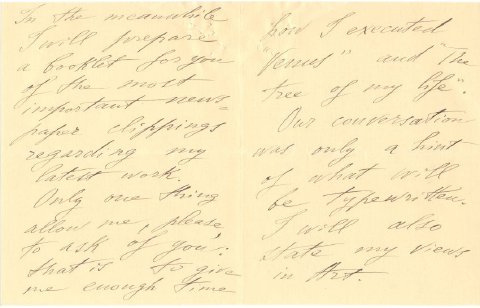 In the meanwhile
I will prepare
a booklet for you
of the most
important news=
paper clippings
regarding my
latest work.
Only one thing
allow me, please,
to ask of you:
that is to give
me enough time
how I executed
"Venus" and "The
tree of my life".
Our conversation
was only a hint
of what will
be typewritten.
I will also
state my views
in Art.